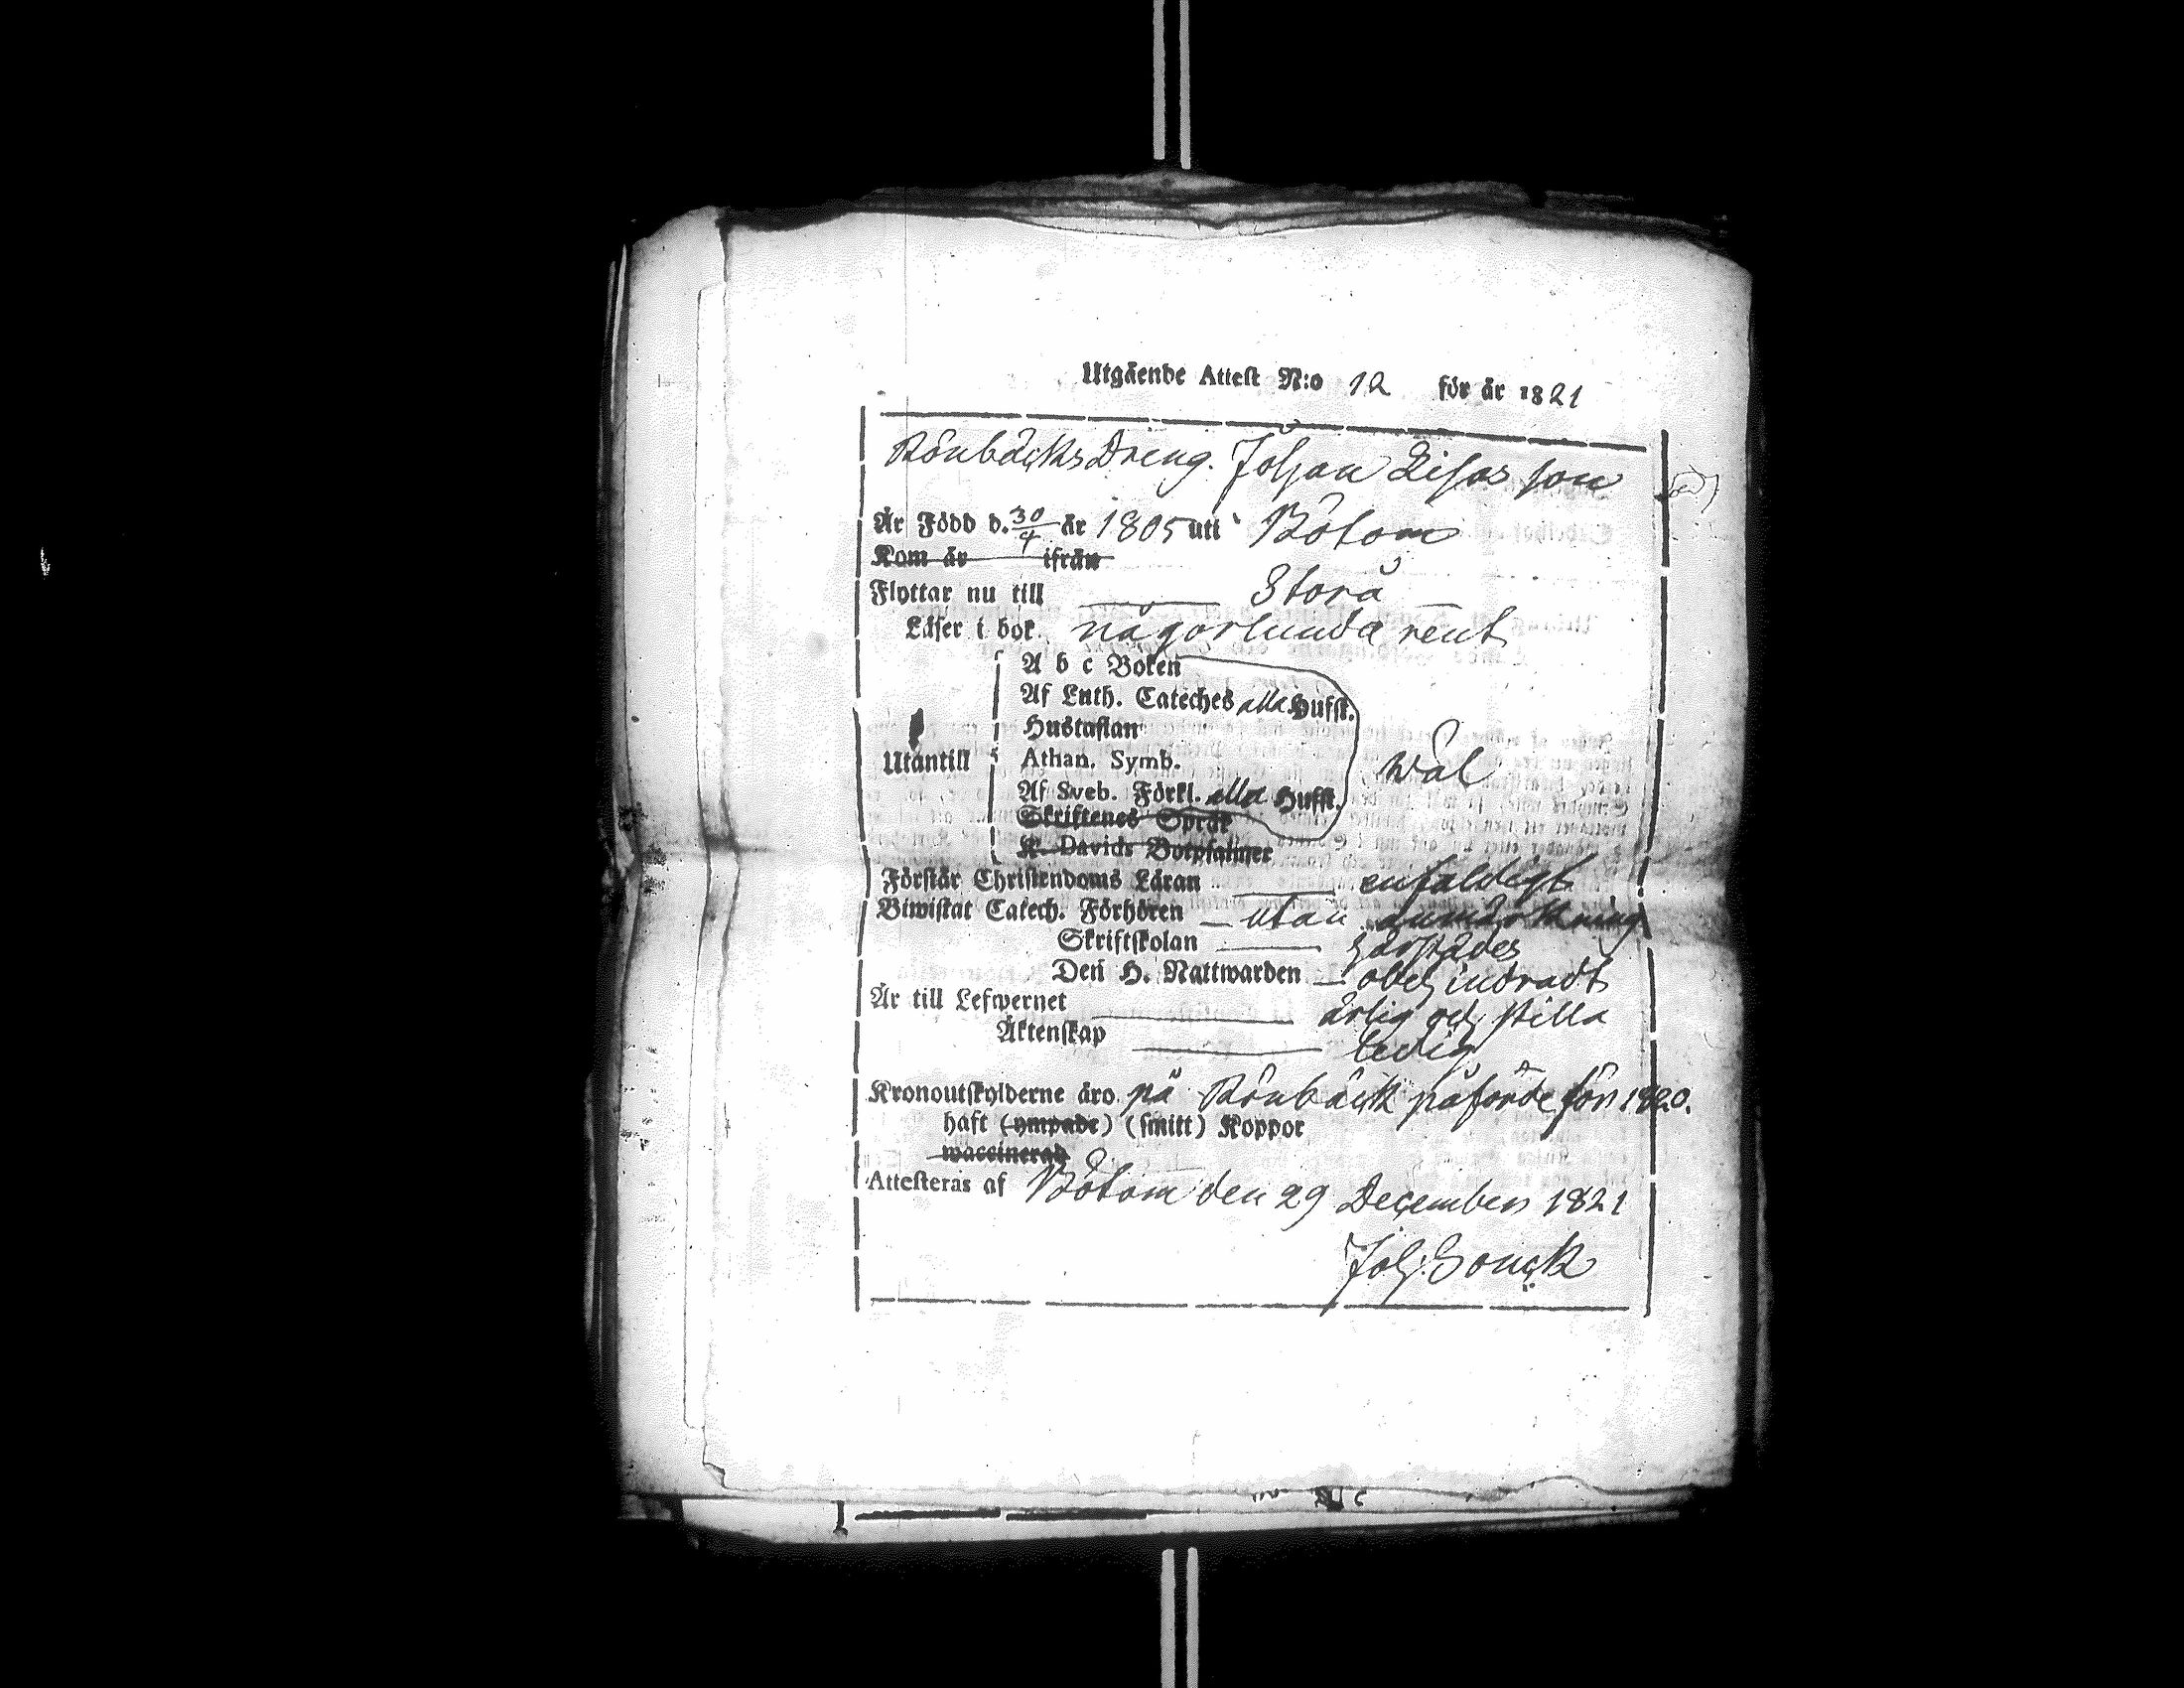 Utgående Attest N:o 12 för år 1821
Rönbäcks Dreng. Johan Lisas son
Är Född d. 30/4 år 1805 uti Bötom
Kom år ifrån
Flyttar nu till Storå
Läser i bok någorlunda rent
A b c Boken
Af Luth. Cateches alla Hufst.
Hustaflan
Utantill Athan. Symb. wäl
Af Sveb. Förkl. alla Hufst.
Skriftenes Språk
K. Davids Botpsalmer
Förstår Christendoms Läran enfaldigt
Biwistat Catech. Förhören utan anmärkning
Skriftskolan härstädes
Den H. Nattwarden obehindradt
Är till Lefwernet ärlig och stilla
Äktenskap ledig
Kronoutskylderne äro på Rönbäck påförde för 1820.
haft (ympade) (smitt) Koppor
waccinerad
Attesteras af Bötom den 29 December 1821
Joh. Sonck